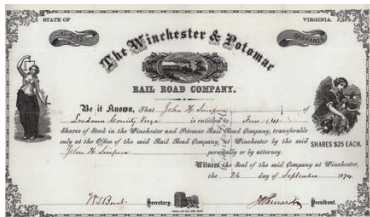 STATE OF VIRGINIA.
The Winchester & Potomac
RAIL ROAD COMPANY.
Be it Known, That John H. Simpson of
Loudoun County Virga is entitled to Four (4)
Shares of Stock in the Winchester and Potomac Rail Road Company, transferable
only at the Office of the said Rail Road Company, at Winchester by the said
John H. Simpson personally or by attorney.
SHARES $25 EACH.
Witness the Seal of the said Company at Winchester,
the 26 day of September 1874
Secretary. President.